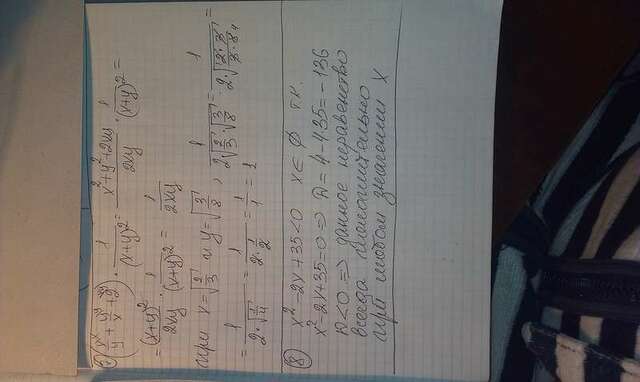 (x/y + y/x + 2) · 1/(x+y)² = (x²+y²+2xy)/2xy · 1/(x+y)² =
= (x+y)²/2xy · 1/(x+y)² = 1/2xy
при x = √(2/3) и y = √(3/8), 1/(2√(2/3)·√(3/8)) = 1/(2·√(2·3/3·8)) =
= 1/(2·√(1/4)) = 1/(2·1/2) = 1/1 = 1
8) x²-2x+35<0 x∈∅ т.к.
x²-2x+35=0 ⇒ D=4-4·35=-136
D<0 ⇒ данное неравенство
всегда положительно
при любом значении x